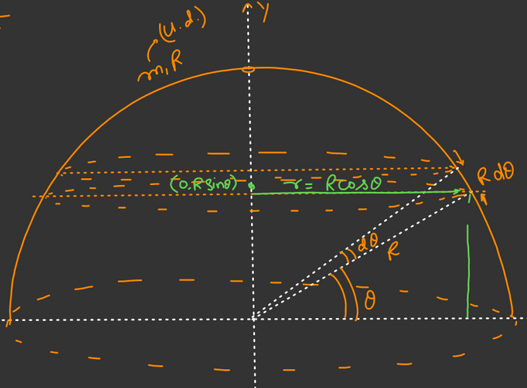 y
(u.d.)
m, R
(0, R sinθ)
r = R cosθ
R dθ
dθ
R
θ